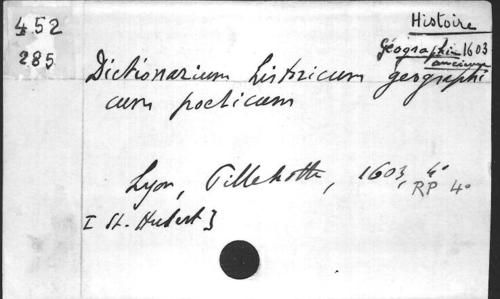 452
285
Histoire
Géographie 1603
ancienne
Dictionarium historicum geographi
cum poeticum
Lyon, Pillehotte, 1603, 4°
RP 4°
[St. Hubert]